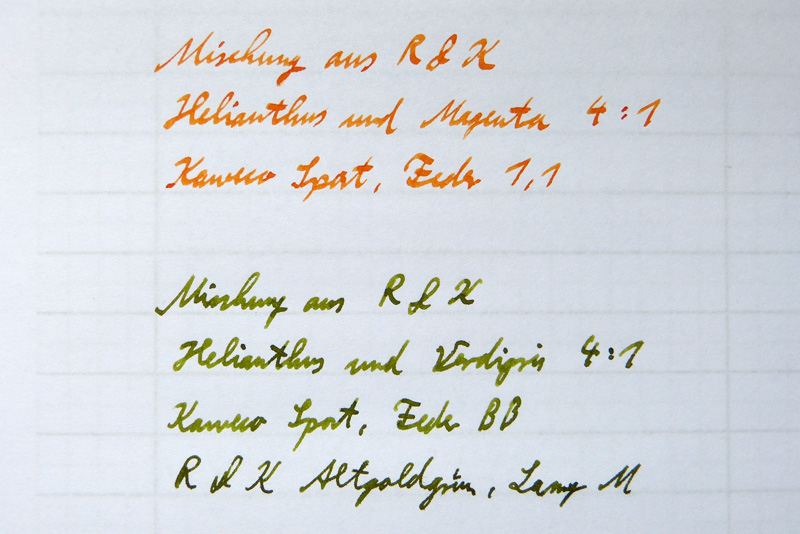 Mischung aus R & K
Helianthus und Magenta 4:1
Kaweco Sport, Feder 1,1
Mischung aus R & K
Helianthus und Verdigris 4:1
Kaweco Sport, Feder BB
R & K Altgoldgrün, Lamy M